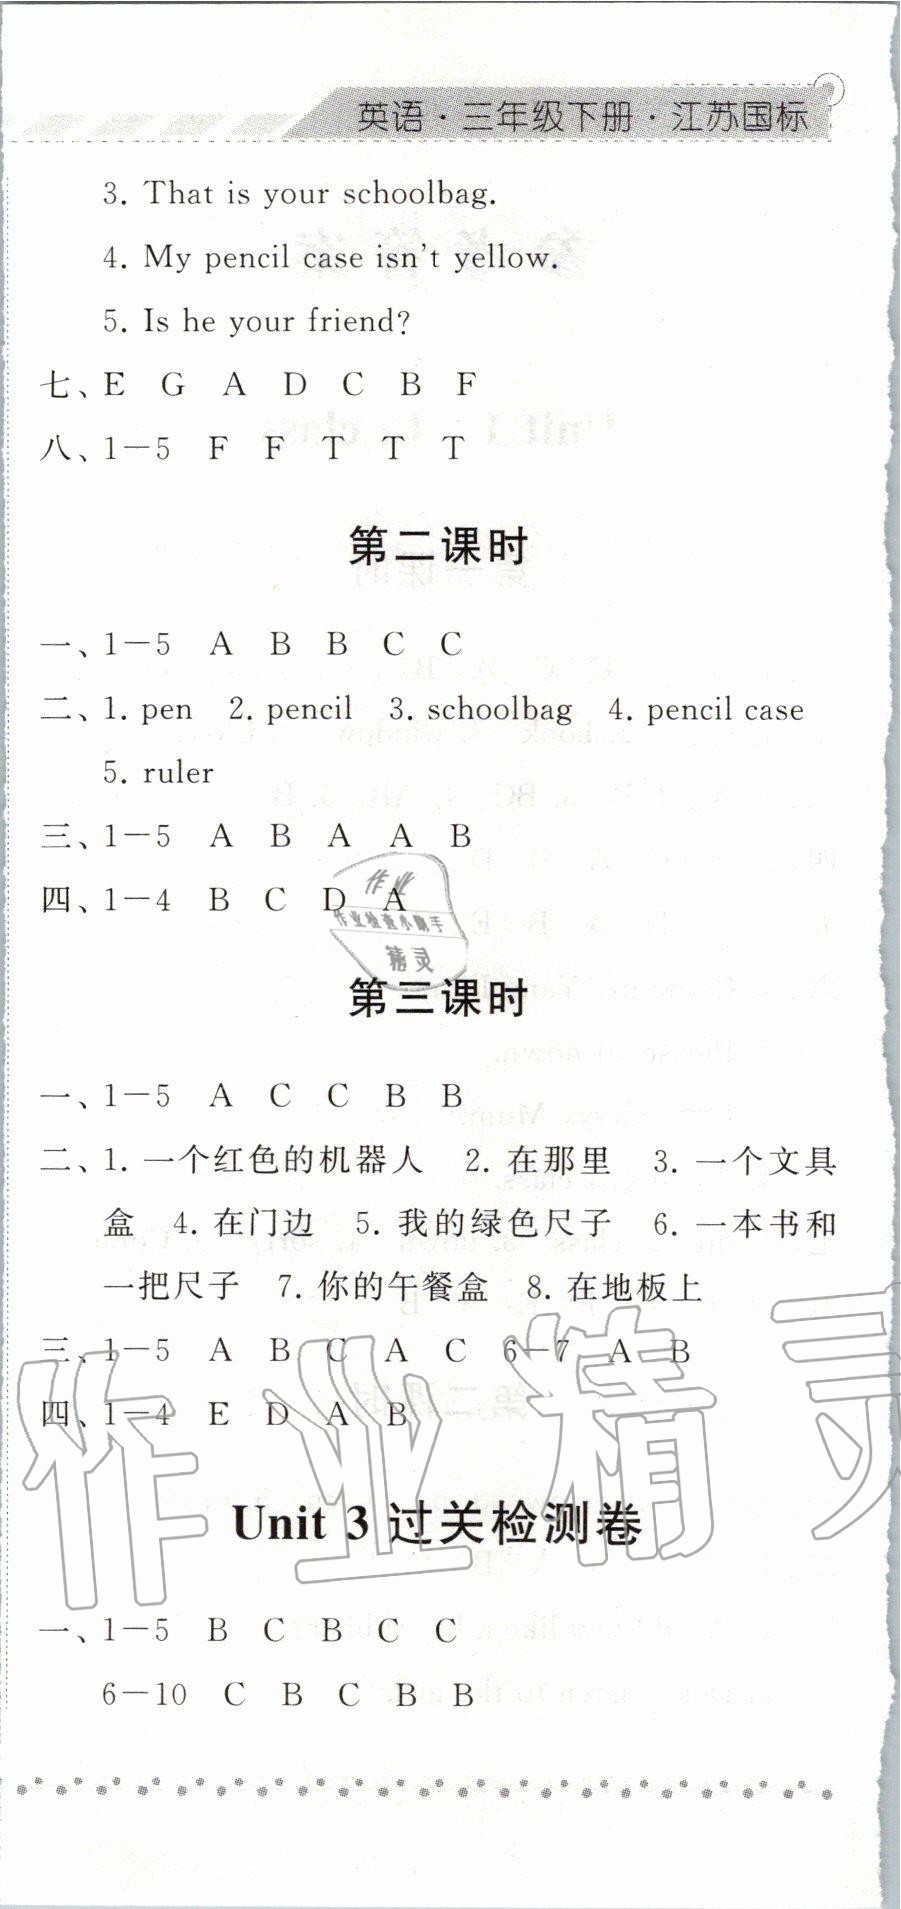 英语·三年级下册·江苏国标
3. That is your schoolbag.
4. My pencil case isn't yellow.
5. Is he your friend?
七、E G A D C B F
八、1－5 F F T T T
第二课时
一、1－5 A B B C C
二、1. pen 2. pencil 3. schoolbag 4. pencil case
5. ruler
三、1－5 A B A A B
四、1－4 B C D A
作业
作业检查小助手
精灵
第三课时
一、1－5 A C C B B
二、1. 一个红色的机器人 2. 在那里 3. 一个文具
盒 4. 在门边 5. 我的绿色尺子 6. 一本书和
一把尺子 7. 你的午餐盒 8. 在地板上
三、1－5 A B C A C 6－7 A B
四、1－4 E D A B
作业精灵
Unit 3 过关检测卷
一、1－5 B C B C C
6－10 C B C B B